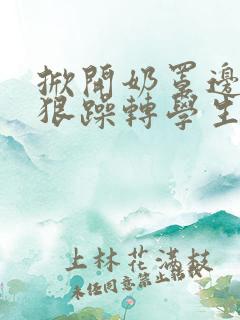 掀開奶罩邊
狠躁轉學生
上林花滿枝
未經同意禁止轉載